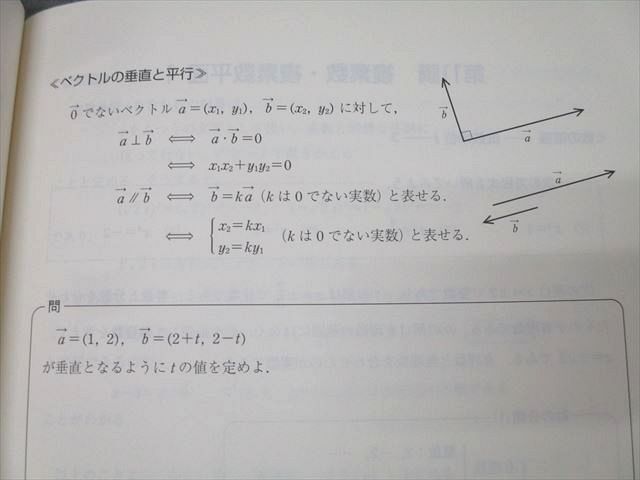 ≪ベクトルの垂直と平行≫
$\vec{0}$ でないベクトル $\vec{a}=(x_1, y_1)$, $\vec{b}=(x_2, y_2)$ に対して,
$\vec{a}⊥\vec{b}$ ⟺ $\vec{a}・\vec{b}=0$
⟺ $x_1x_2+y_1y_2=0$
$\vec{a}∥\vec{b}$ ⟺ $\vec{b}=k\vec{a}$ (k は 0 でない実数) と表せる.
⟺ { $x_2=kx_1$
$y_2=ky_1$ (k は 0 でない実数) と表せる.
$\vec{b}$
$\vec{a}$
$\vec{a}$
$\vec{b}$
問
$\vec{a}=(1, 2)$, $\vec{b}=(2+t, 2-t)$
が垂直となるように t の値を定めよ.